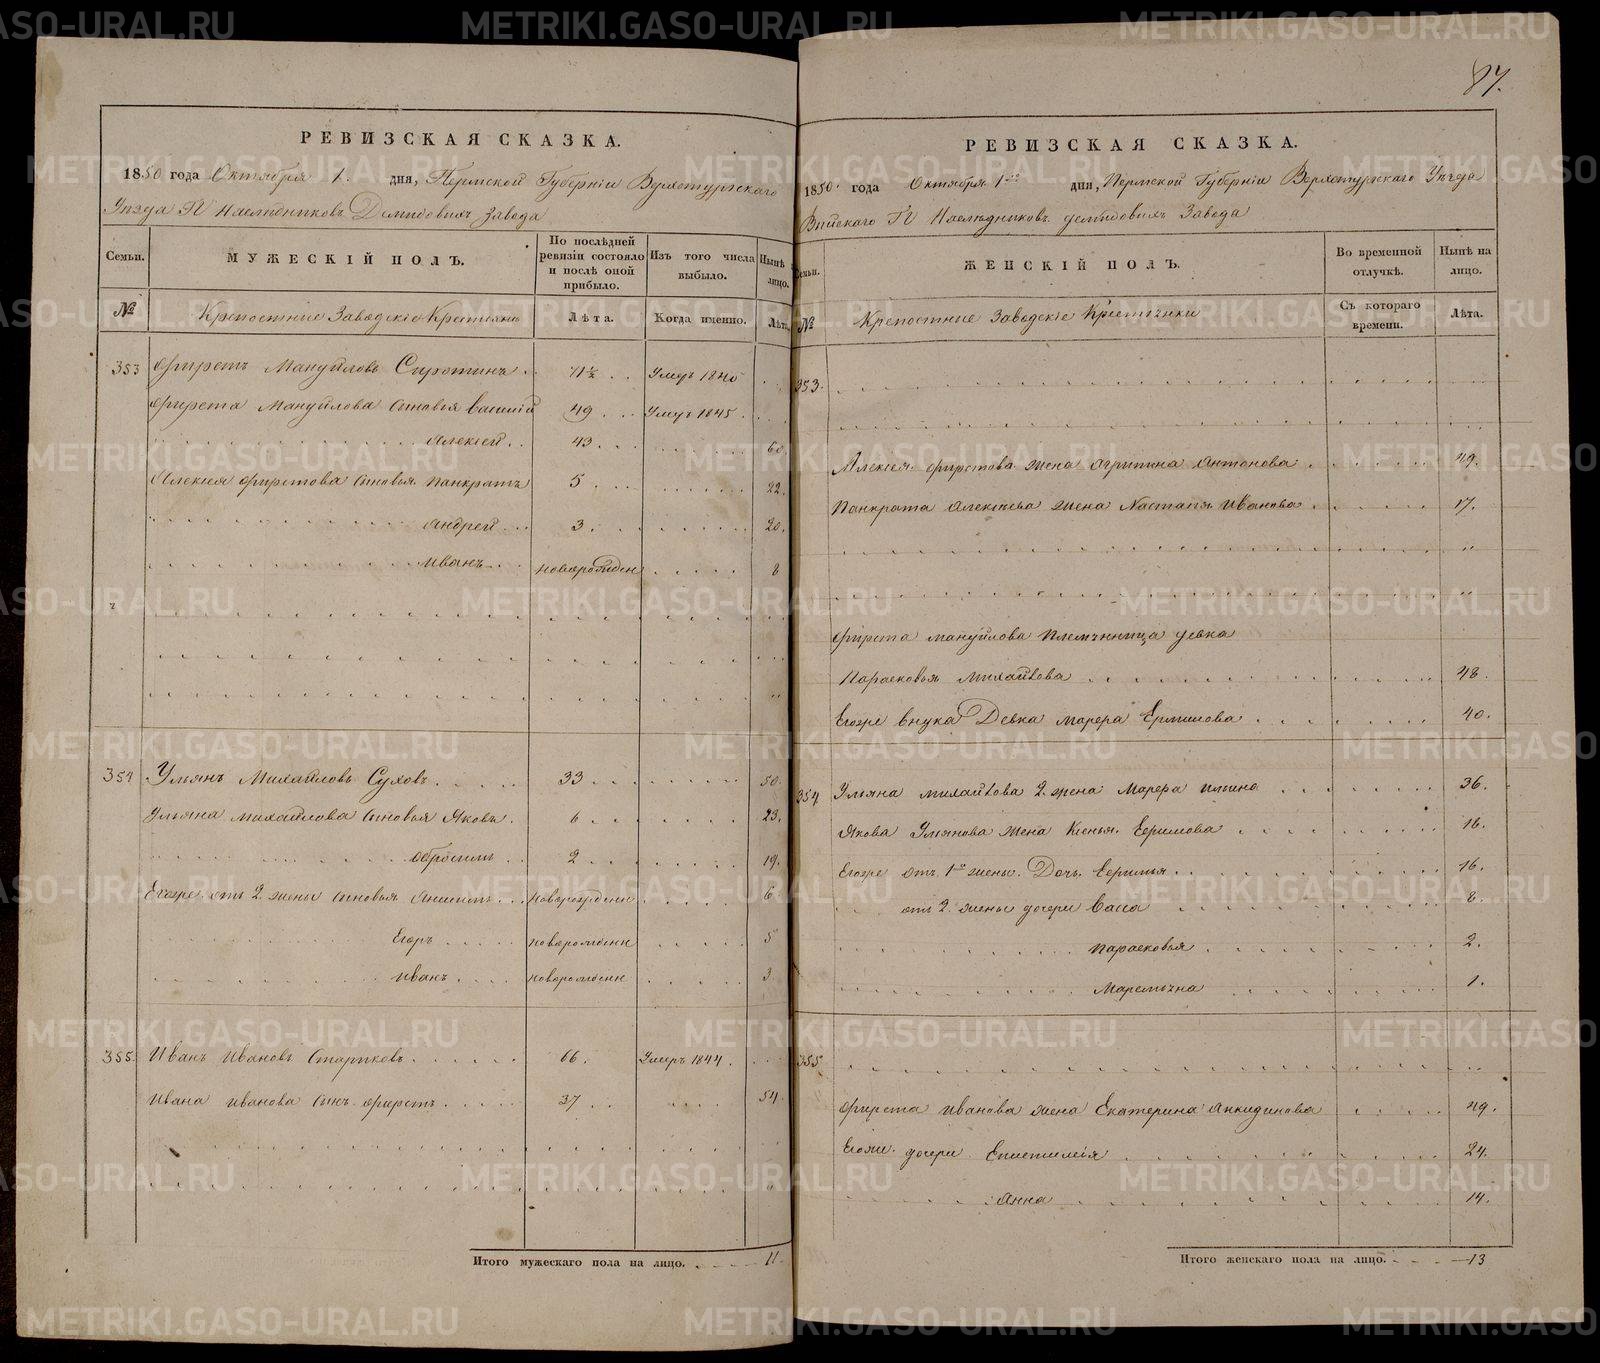 87.
РЕВИЗСКАЯ СКАЗКА.
1850 года Октября 1. дня, Пермской Губернiи Верхотурскаго
Уезда Гг Наследниковъ Демидовыхъ завода
Семьи.
МУЖЕСКIЙ ПОЛЪ.
По послѣдней ревизiи состояло и послѣ оной прибыло.
Изъ того числа выбыло.
Нынѣ лицо.
№
Крепостные Заводскiе Крестьяне
Лѣта.
Когда именно.
Лѣта
353 Фирстъ Мануйловъ Сиротинъ 71½ Умеръ 1840
Фирста Мануйлова сыновья Василiй 49 Умеръ 1845
Алексей 43 60
Алексея Фирстова сыновья Панкратъ 5 22.
Андрей 3 20.
Иванъ новорожден 8
354 Ульянъ Михайловъ Суховъ 33 50.
Ульяна Михайлова сыновья Яковъ 6 23.
Обросимъ 2 19.
Егоже отъ 2 жены сыновья Анисимъ новорожденн 6
Егоръ новорожденн 5
Иванъ новорожденн 3
355 Иванъ Ивановъ Стариковъ 66. Умеръ 1844.
Ивана Иванова сынъ Фирстъ 37 54
Итого мужескаго пола на лицо. 11
РЕВИЗСКАЯ СКАЗКА.
1850 года Октября 1го дня, Пермской Губернiи Верхотурскаго Уезда
Выйскаго Гг Наследниковъ Демидовыхъ Завода
Семьи.
ЖЕНСКIЙ ПОЛЪ.
Во временной отлучкѣ.
Нынѣ на лицо.
№
Крепостные Заводскiе Крестьянки
Съ котораго времени.
Лѣта.
353.
Алексея Фирстова жена Огрипина Антонова 49.
Панкрата Алексѣева жена Настасья Иванова 17.
Фирста Мануйлова племянница девка
Парасковья Михайлова 48.
Егоже внука Девка Марфа Ермилова 40.
354 Ульяна Михайлова 2 жена Марфа Ильина 36.
Якова Ульянова жена Ксенья Ефимова 18.
Егоже отъ 1й жены Дочь Ефимья 16.
отъ 2 жены дочери Васса 8.
Парасковья 2.
Маремьяна 1.
355
Фирста Иванова жена Екатерина Анкидинова 49.
Егоже дочери Епистимiя 24.
Анна 14.
Итого женскаго пола на лицо. 13
METRIKI.GASO-URAL.RU